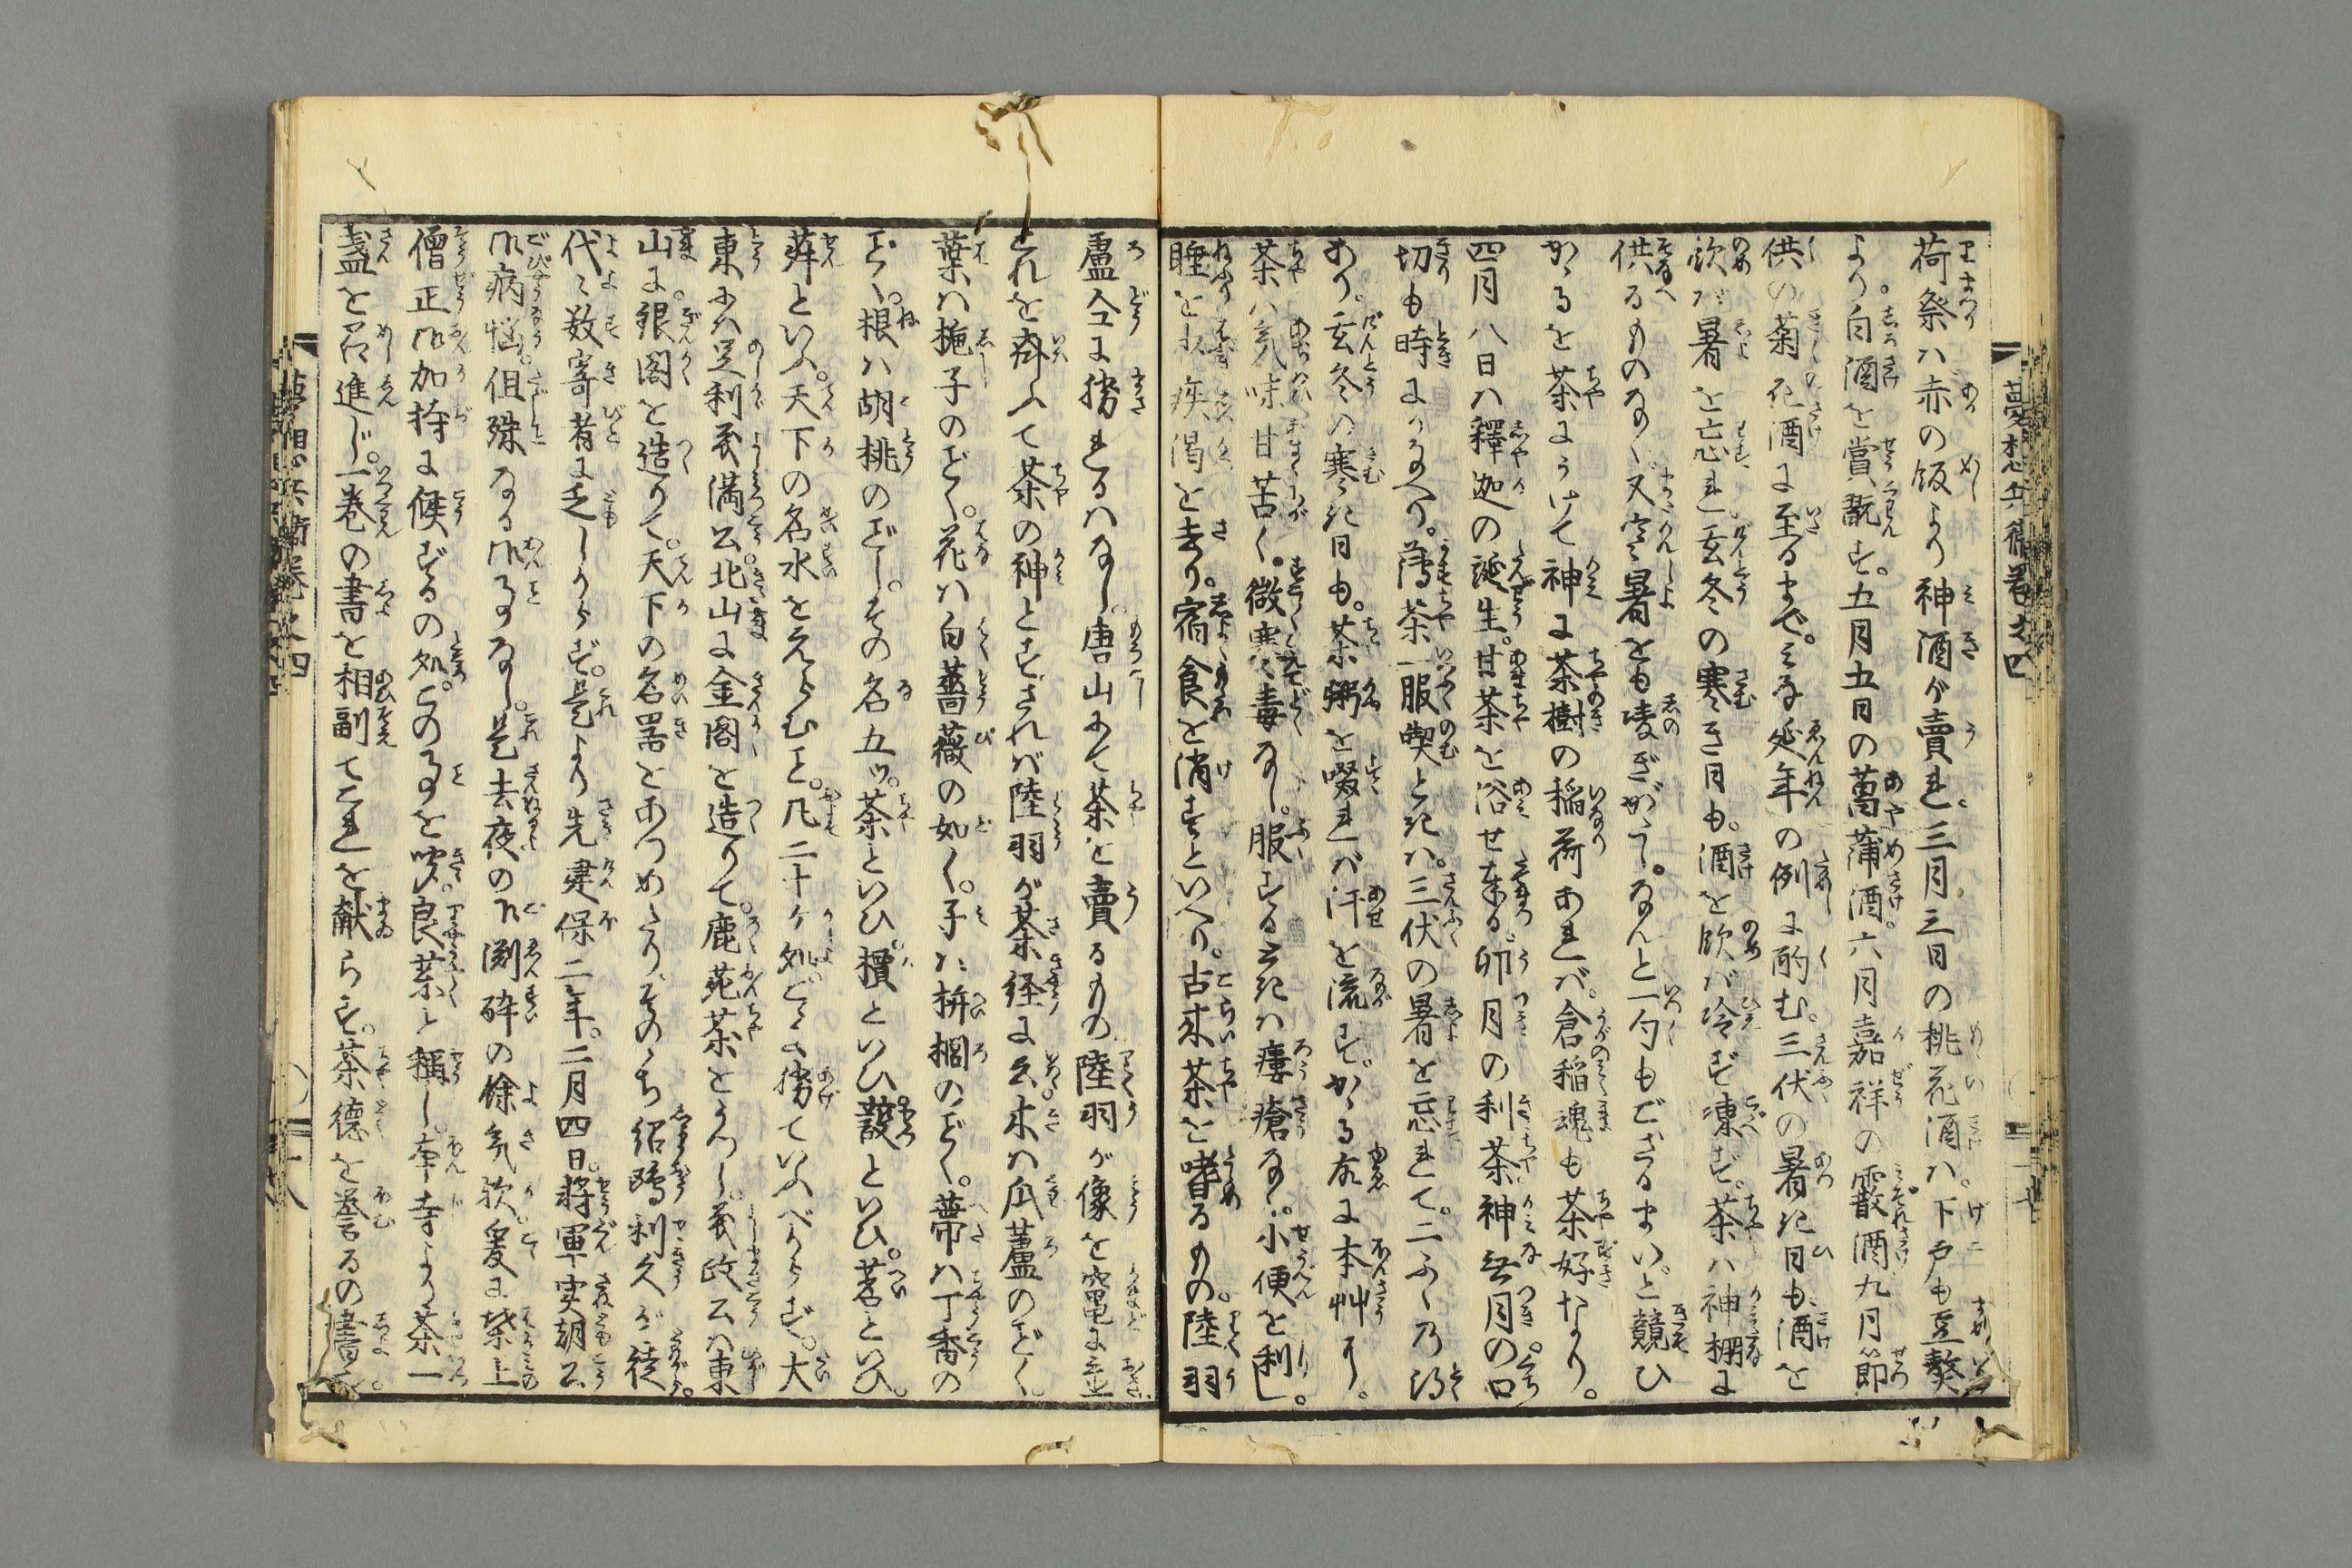 夢想兵衛巻之四
荷祭ハ赤の飯より神酒が賣れ三月三日の桃花酒ハ。下戸も豆熬
より。白酒を賞翫す。五月五日の菖蒲酒。六月嘉祥の霰酒。九月節
供の菊花酒に至るまで。みな延年の例に酌む。三伏の暑き日も酒を
飲バ暑を忘れ。玄冬の寒き日も。酒を飲バ冷ず凍ず。茶ハ神棚に
供るものならず。又寒暑をも凌ぎがたし。なんと一句もござるまい。と競ひ
かゝるを茶にうけて神に茶樹の稲荷あれバ。倉稲魂も茶好なり。
四月八日ハ釋迦の誕生。甘茶を浴せ奉る卯月の利茶神無月の口
切も時により。薄茶一服喫ときハ。三伏の暑を忘れて。二ふくの
あり。玄冬の寒き日も。茶粥を啜れバ汗を流す。かゝる故に本艸に。
茶ハ気味甘苦く。微寒毒なし。服するときハ瘻瘡なく。小便を利し。
睡を少疾渇を去り。宿食を消すといへり。古来茶を嗜るもの。陸羽
盧仝に勝れるハなし。唐山にて茶を賣るもの陸羽が像を竃に並
これを斎ふて茶の神とす。されバ陸羽が茶経に云。木ハ瓜蘆のごく。
葉ハ梔子のごく。花ハ白薔薇の如く。子ハ栟櫚のごく。蔕ハ丁香の
ごく。根ハ胡桃のごし。その名五ツ。茶といひ檟といひ蔎といひ。茗といひ。
荈といふ。天下の名水をえらむと。凡二十ケ処ごと勝ていふべからず。大
東にハ足利義満公。北山に金閣を造りて。鹿苑茶をうつし。義政公ハ東
山に。銀閣を造りて。天下の名器をあつめたり。そのゝち紹鴎利久が徒。
代々数寄者に乏しからず。是より先建保二年。二月四日。将軍実朝公
御病悩。但殊なる御事なし。是去夜の御淵酔の餘気歟。爰に葉上
僧正御加持に候ずるの処。この事を聞。良薬と稱し。本寺より茶一
盞を召進じ。一巻の書を相副てこれを献らす。茶德を譽るの書
夢想兵衛巻之四